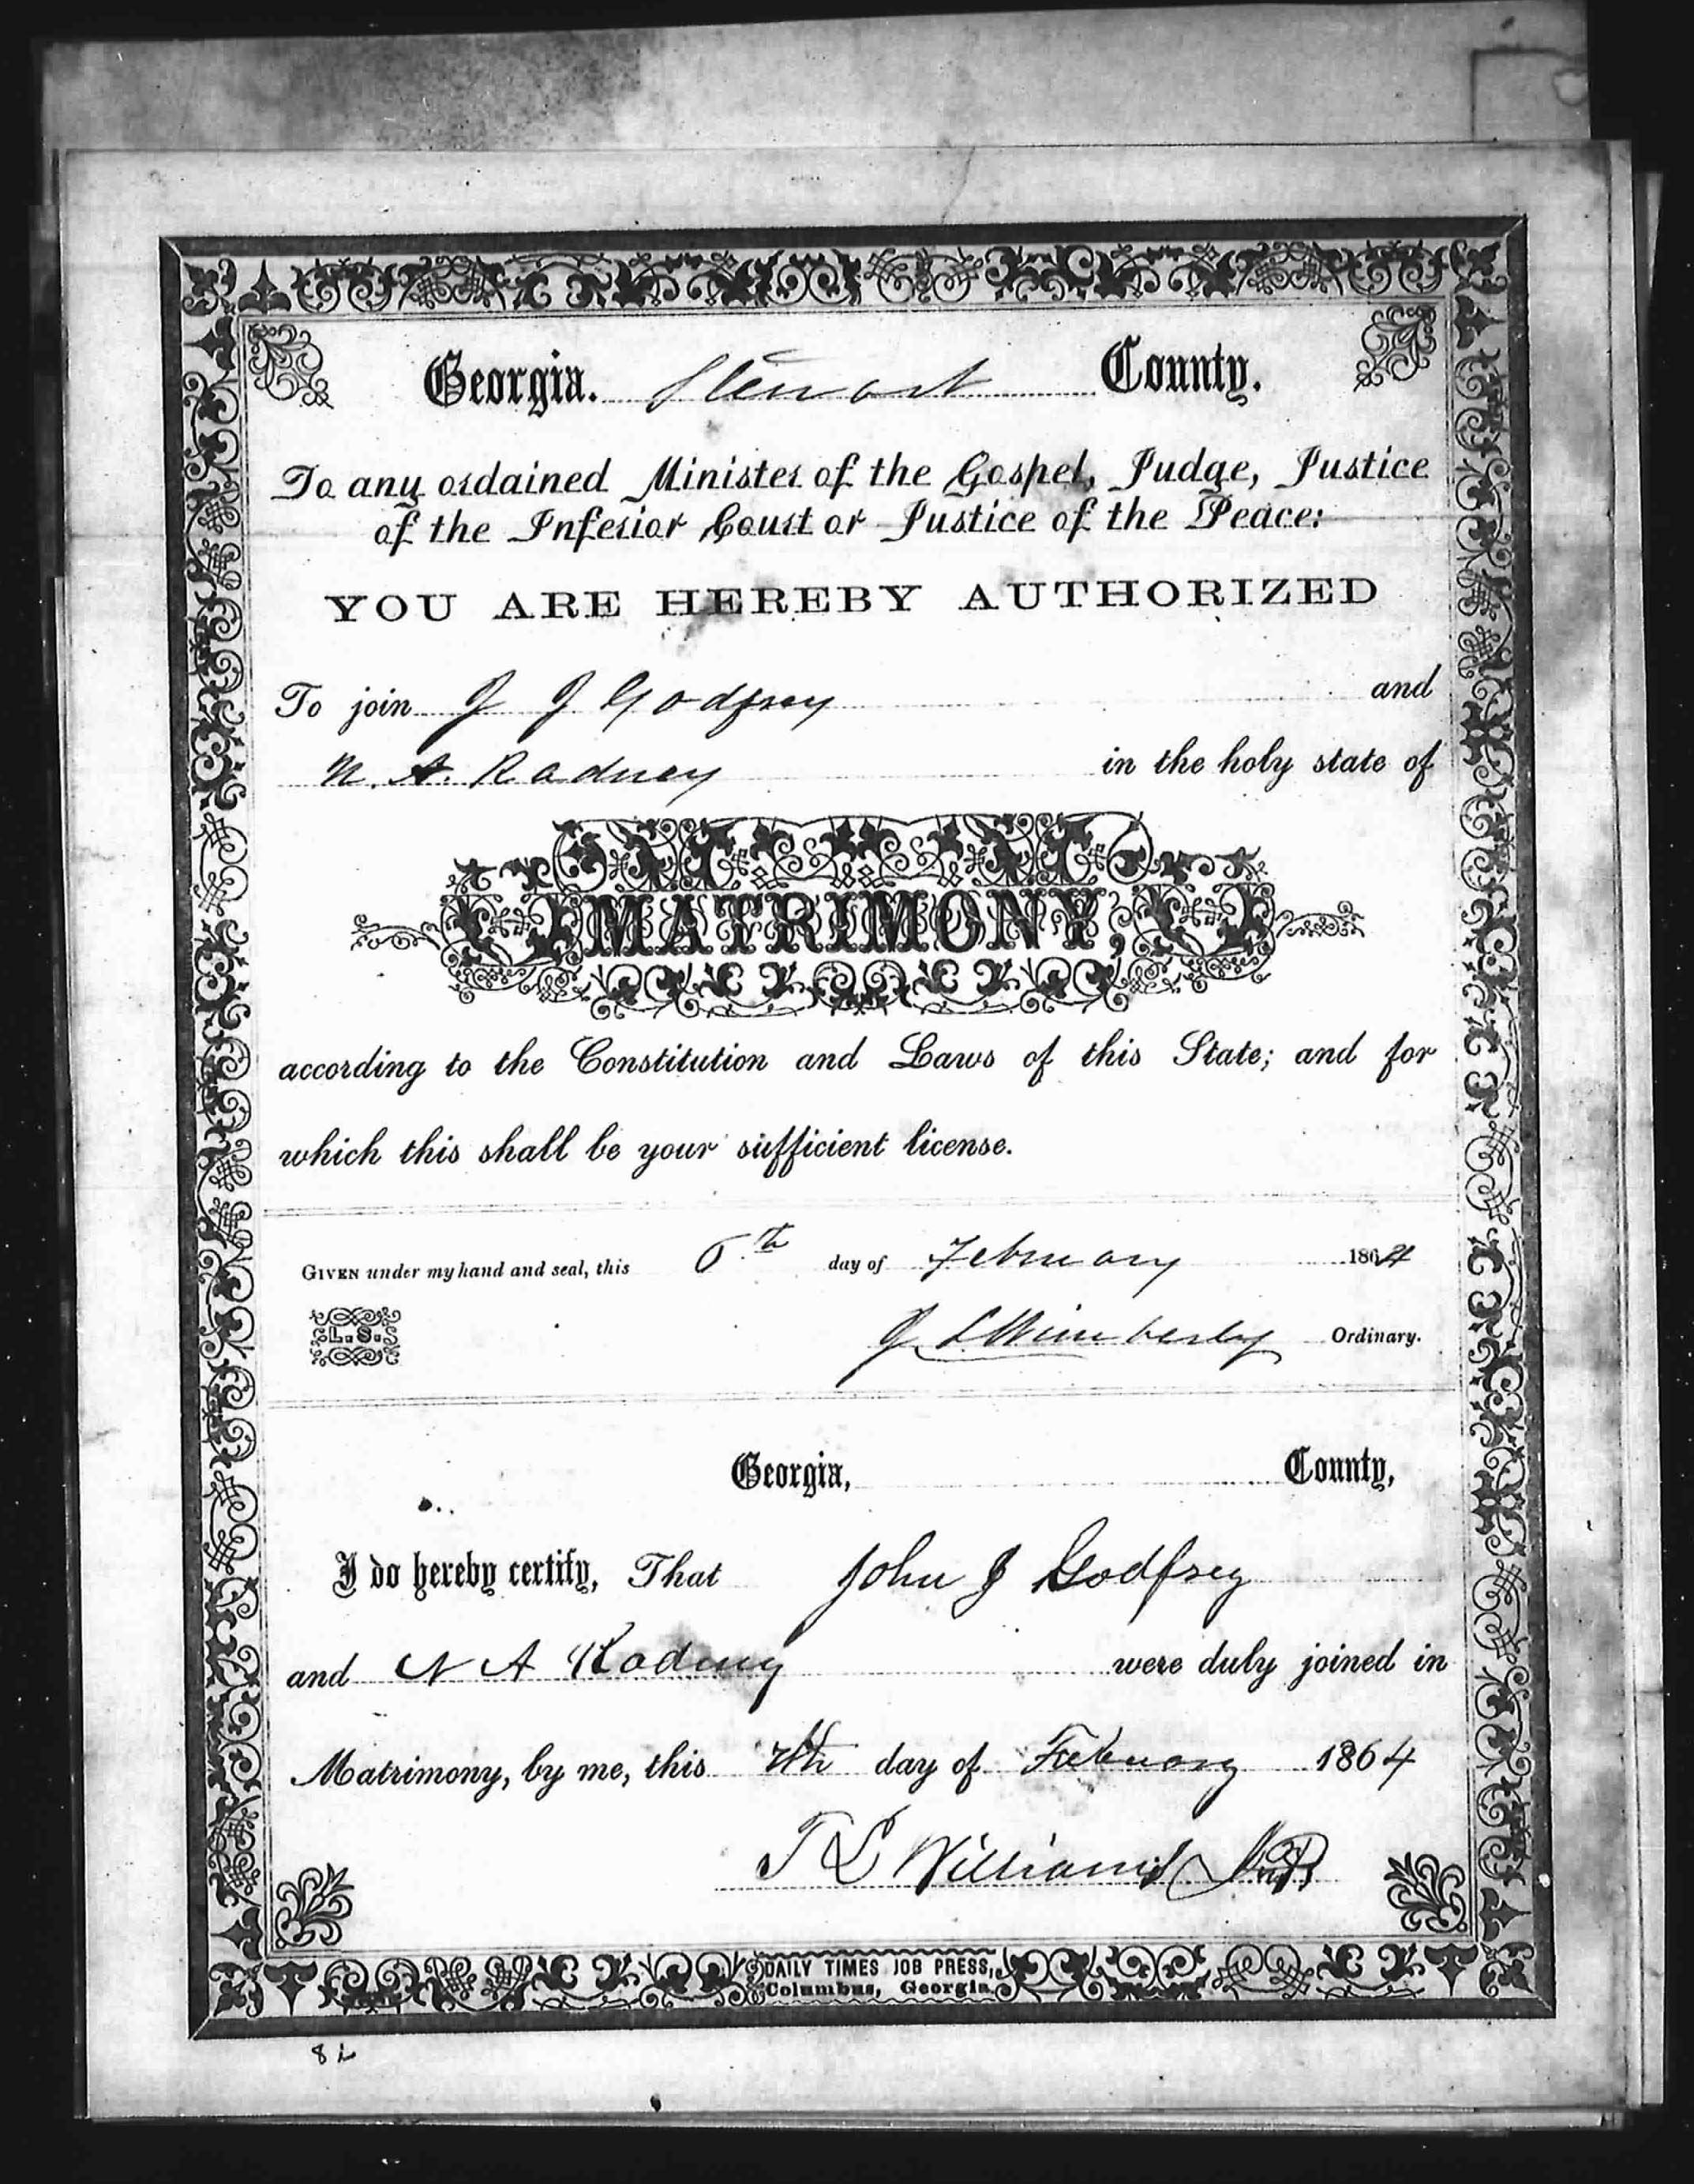 Georgia. Stewart County.
To any ordained Minister of the Gospel, Judge, Justice
of the Inferior Court or Justice of the Peace:
YOU ARE HEREBY AUTHORIZED
To join J J Godfrey and
N. A. Radney in the holy state of
MATRIMONY,
according to the Constitution and Laws of this State; and for
which this shall be your sufficient license.
GIVEN under my hand and seal, this 6th day of February 1864
L. S.
J L Wimberly Ordinary.
Georgia, County,
I do hereby certify, That John J Godfrey
and N A Radney were duly joined in
Matrimony, by me, this 7th day of February 1864
Williams
DAILY TIMES JOB PRESS,
Columbus, Georgia.